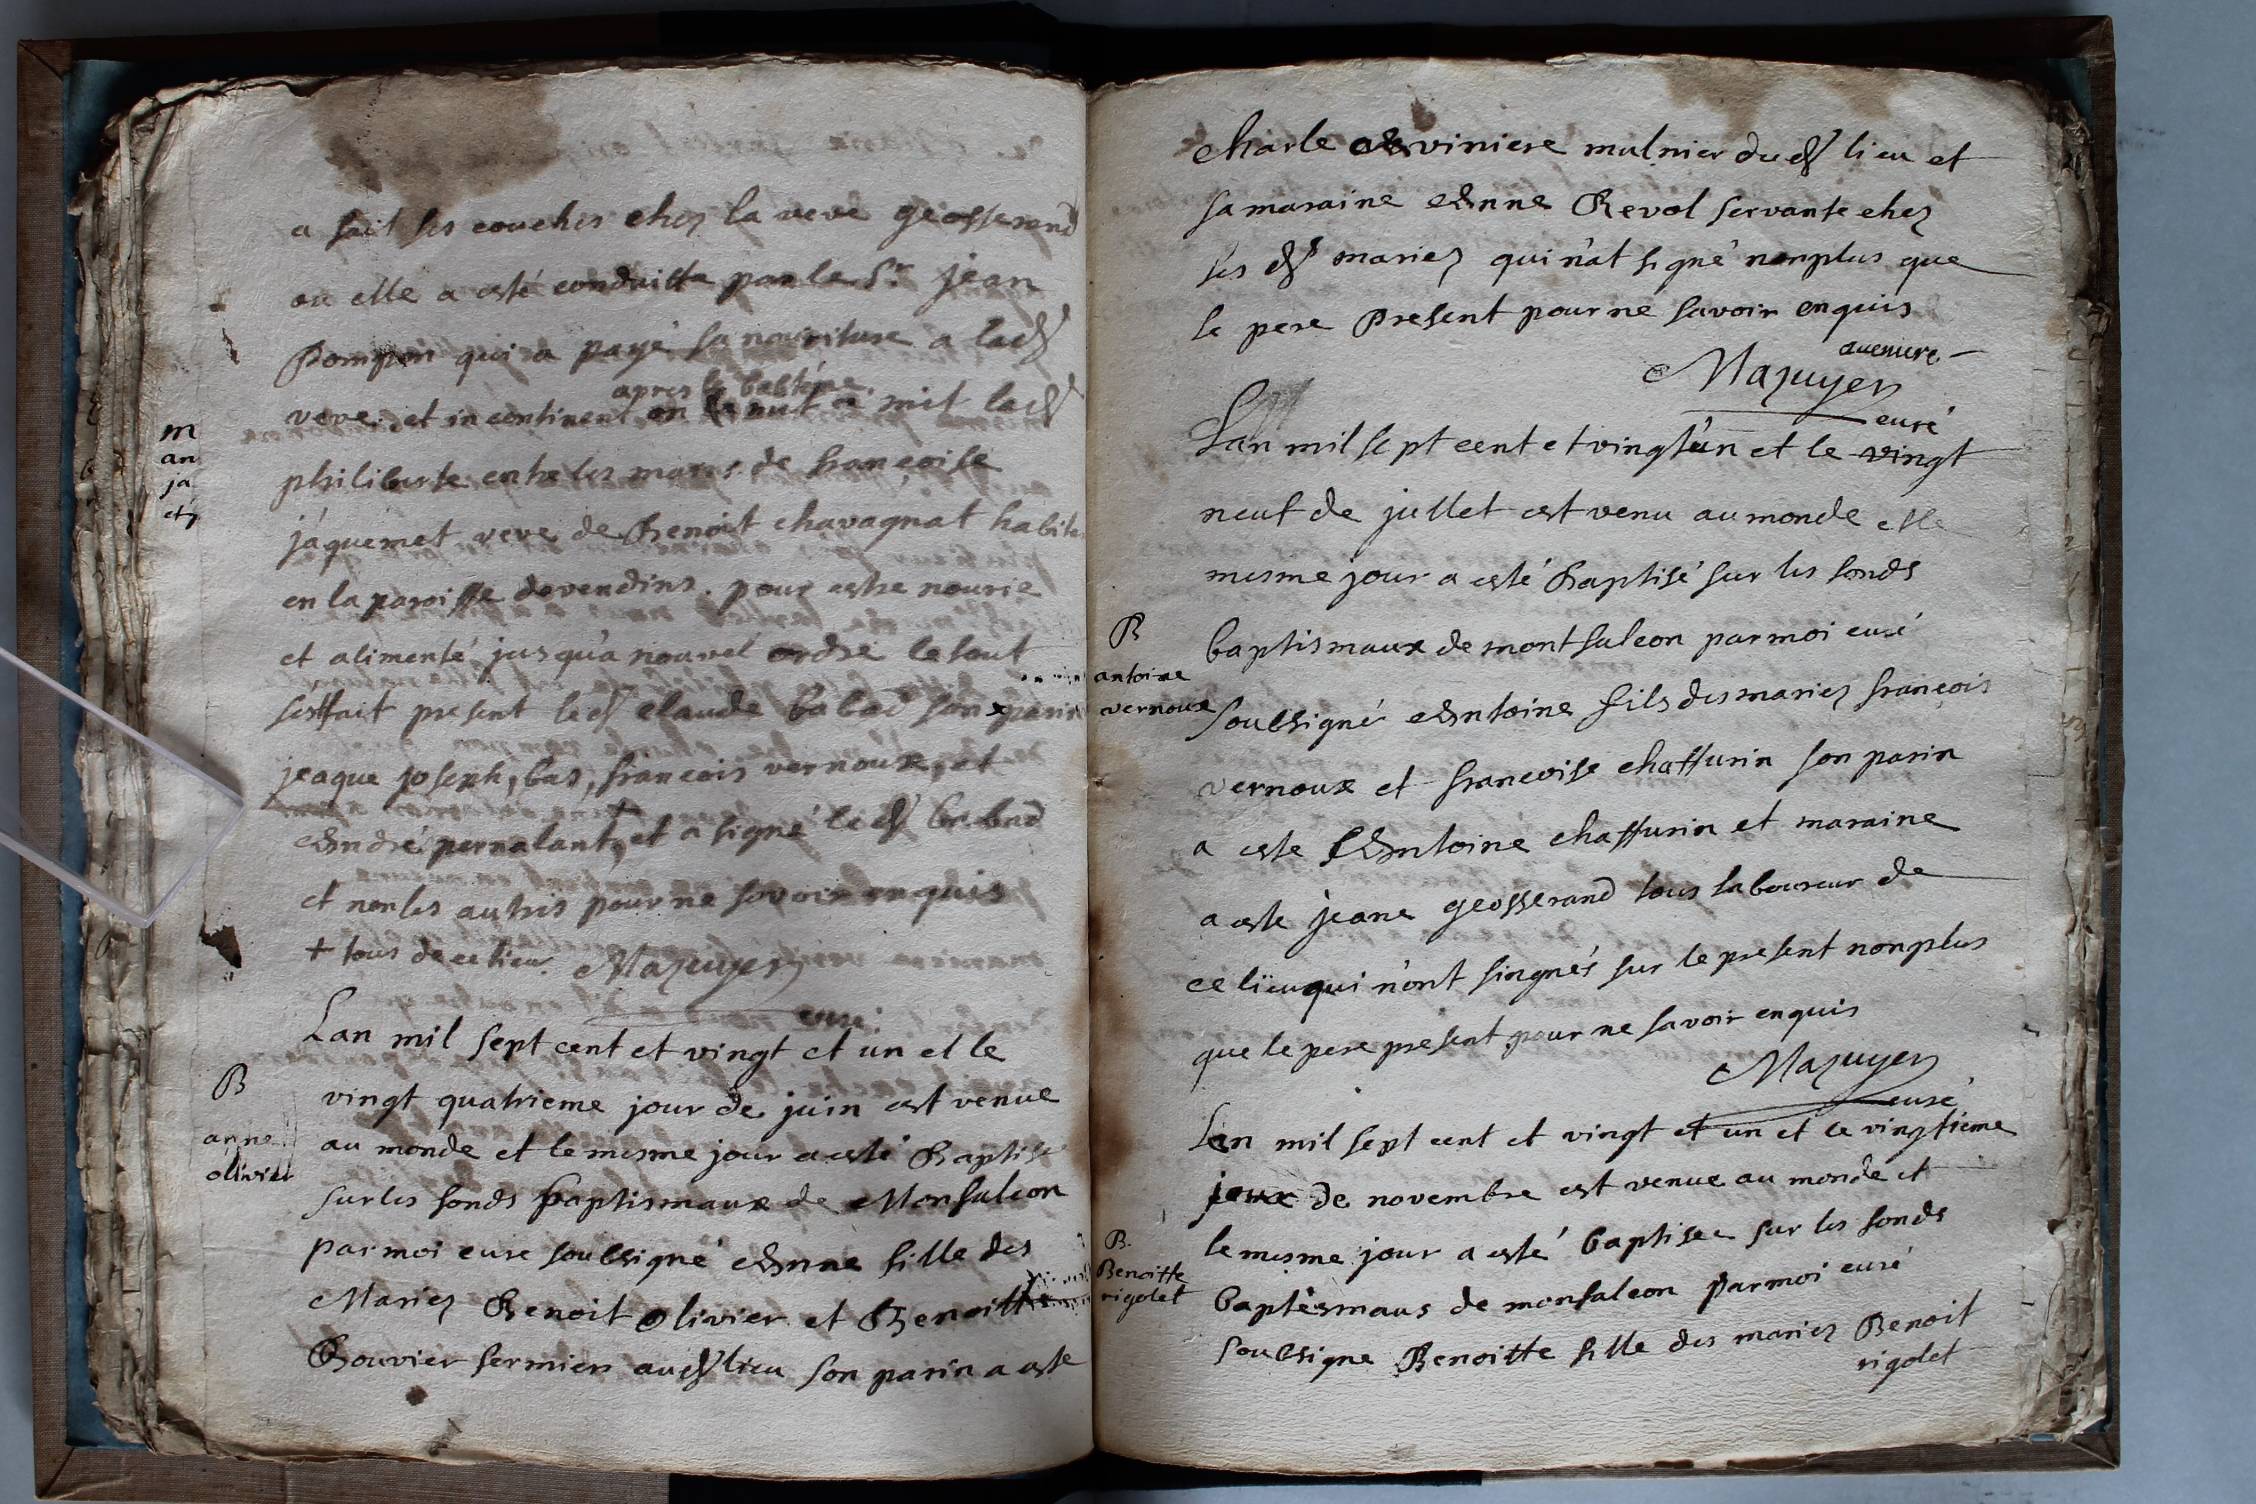 a fait ses couches chez la veve geofferend
ou elle a esté conduitte par le Sr. jean
Pompon qui a payé sa nouriture a lad
veve et incontinent apres le babtême on a mit lad
philiberte entre les mains de françoise
jáquemet veve de Benoit chavagnat habite
en la paroisse dovendins. pour estre nourie
et alimenté jusqu'a nouvel ordre le tout
sest fait present led claude babad son parin
jeaque joseph, bas, francois vernoux, et
Andre pernalant, + et a signé led babad
et non les autris pour ne sovoir enquis
+ tous de ce lieu. Mazuyer
curé
m
an
ja
et
Lan mil sept cent et vingt et un et le
vingt quatrieme jour de juin est venue
au monde et le mesme jour a esté Baptisé
sur les fonds baptismaux de Monsaleon
par moi cure soubsigné Anne fille des
Mariez Benoit olivier et Benoitte
Bouvier fermier aud lieu son parin a este
B
anne
olivier
charle viniere mulnier dud lieu et
sa maraine Anne Revol servante chez
les d mariez qui n'at signé nonplus que
le pere Present pour ne savoir enquis
Mazuyer
curé
Lan mil sept cent et vingt un et le vingt
neuf de jullet est venu au monde et le
mesme jour a esté Baptisé sur les fonds
baptismaux de montsaleon par moi curé
soubsigné Antoine fils des mariez francois
vernoux et francoise chaffurin son parin
a este Antoine chaffurin et maraine
a este jeane geofferand tous laboureur de
ce lieu qui n'ont singnés sur le present nonplus
que le pere present pour ne savoir enquis
Mazuyer
curé
B
antoine
vernoux
Lan mil sept cent et vingt et un et le vingtieme
jour de novembre est venue au monde et
le mesme jour a esté baptisee sur les fonds
baptesmaus de monsaleon par moi curé
soubsigne Benoitte fille des mariez Benoit
rigolet
B.
Benoitte
rigolet